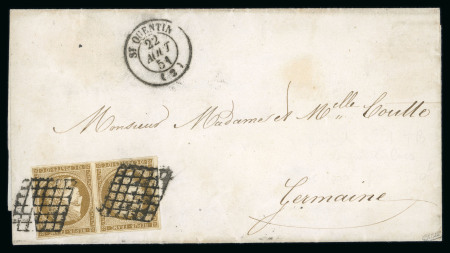 ST QUENTIN
22
AOUT
51
(2)
Monsieur Madame et Melle Coutte
Germaine